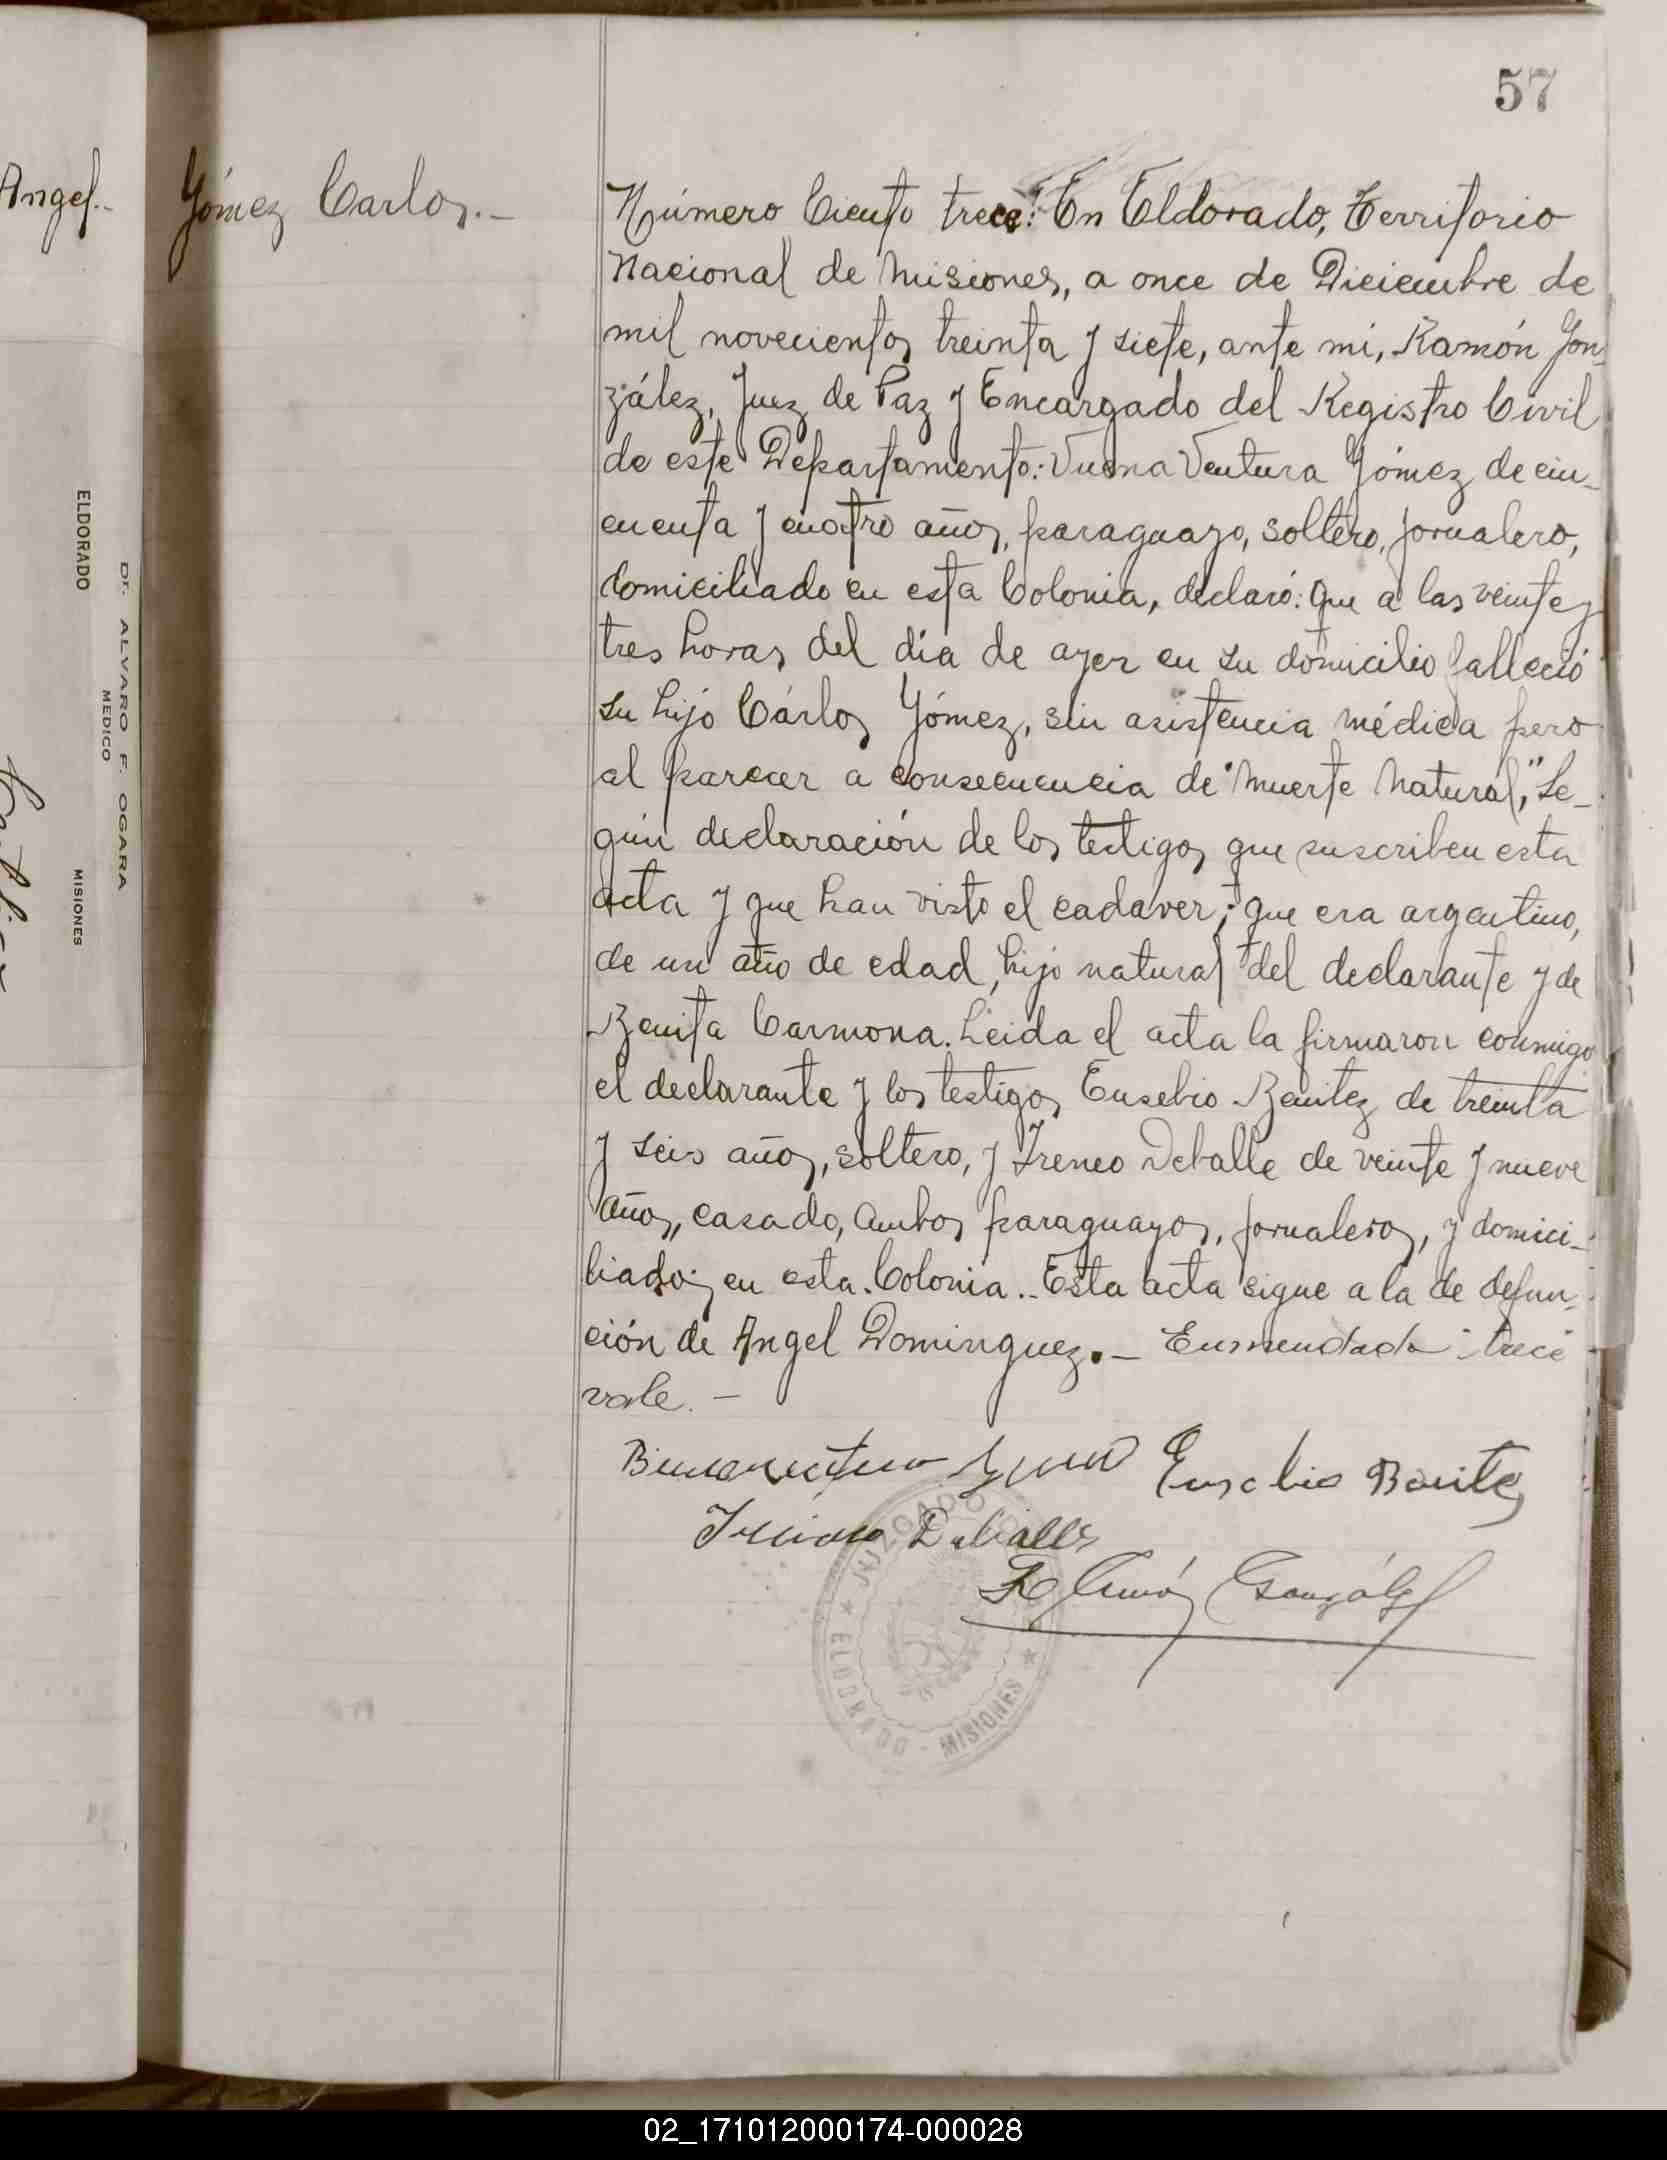 57
Angel.-
Gómez Carlos.-
Número Ciento trece: En Eldorado, Territorio
Nacional de Misiones, a once de Diciembre de
mil novecientos treinta y siete, ante mí, Ramón Gon-
zález, Juez de Paz y Encargado del Registro Civil
de este Departamento: Vuena Ventura Gómez de cin-
cuenta y cuatro años, paraguayo, soltero, jornalero,
domiciliado en esta Colonia, declaró: Que a las veinte y
tres horas del día de ayer en su domicilio falleció
su hijo Cárlos Gómez, sin asistencia médica pero
al parecer a consecuencia de "Muerte Natural", Se-
gún declaración de los testigos que suscriben esta
acta y que han visto el cadaver; que era argentino,
de un año de edad, hijo natural del declarante y de
Benita Carmona. Leida el acta la firmaron conmigo
el declarante y los testigos Eusebio Benitez de treinta
y seis años, soltero, y Ireneo Deballe de veinte y nueve
años, casado, ambos paraguayos, jornaleros, y domici-
liados en esta Colonia.. Esta acta sigue a la de defun-
ción de Angel Dominguez.- Enmendado "trece"
vale.-
Eusebio Benitez
Ramón González
JUZGADO
ELDORADO - MISIONES
ELDORADO
MISIONES
Dr. ALVARO F. OGARA
MEDICO
02_171012000174-000028